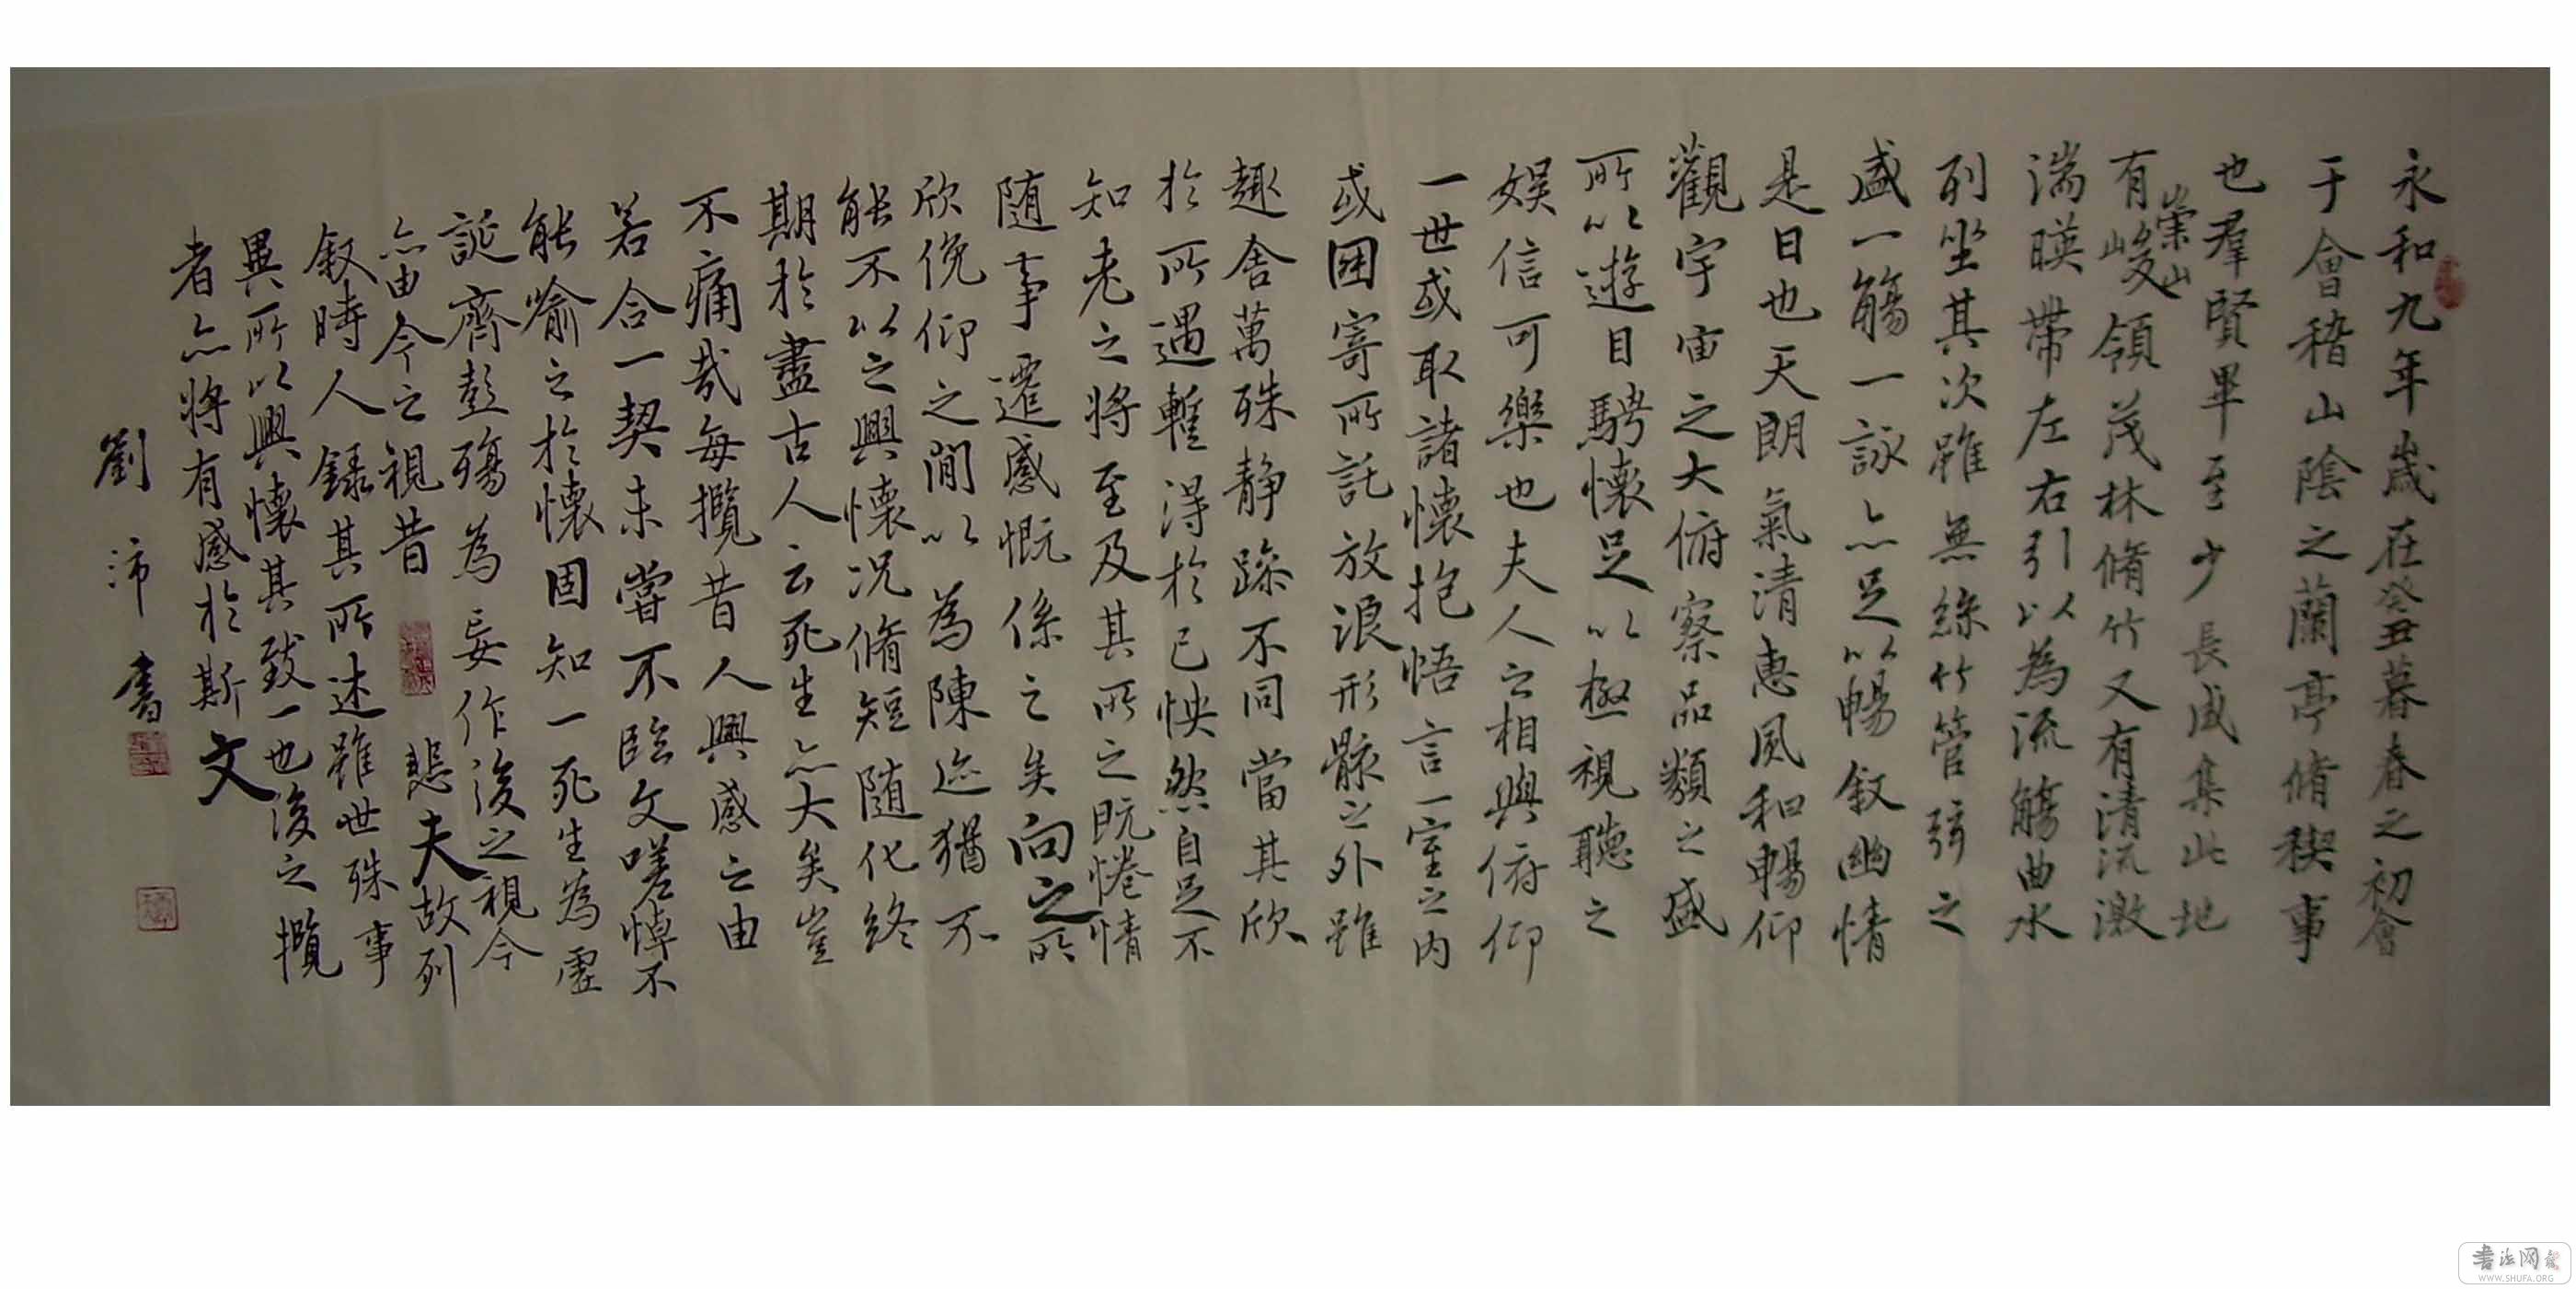 永和九年歲在癸丑暮春之初會
于會稽山陰之蘭亭脩稧事
也羣賢畢至少長咸集此地
崇山
有峻領茂林脩竹又有清流激
湍暎帶左右引以為流觴曲水
列坐其次雖無絲竹管弦之
盛一觴一詠亦足以暢叙幽情
是日也天朗氣清惠風和暢仰
觀宇宙之大俯察品類之盛
所以遊目騁懷足以極視聽之
娛信可樂也夫人之相與俯仰
一世或取諸懷抱悟言一室之內
或因寄所託放浪形骸之外雖
趣舍萬殊靜躁不同當其欣
於所遇蹔得於己怏然自足不
知老之將至及其所之既惓情
隨事遷感慨係之矣向之所
欣俛仰之閒以為陳迹猶不
能不以之興懷況脩短隨化終
期於盡古人云死生亦大矣豈
不痛哉每攬昔人興感之由
若合一契未嘗不臨文嗟悼不
能喻之於懷固知一死生為虛
誕齊彭殤為妄作後之視今
亦由今之視昔悲夫故列
叙時人錄其所述雖世殊事
異所以興懷其致一也後之攬
者亦將有感於斯文
劉沛書
書法网
WWW.SHUFA.ORG